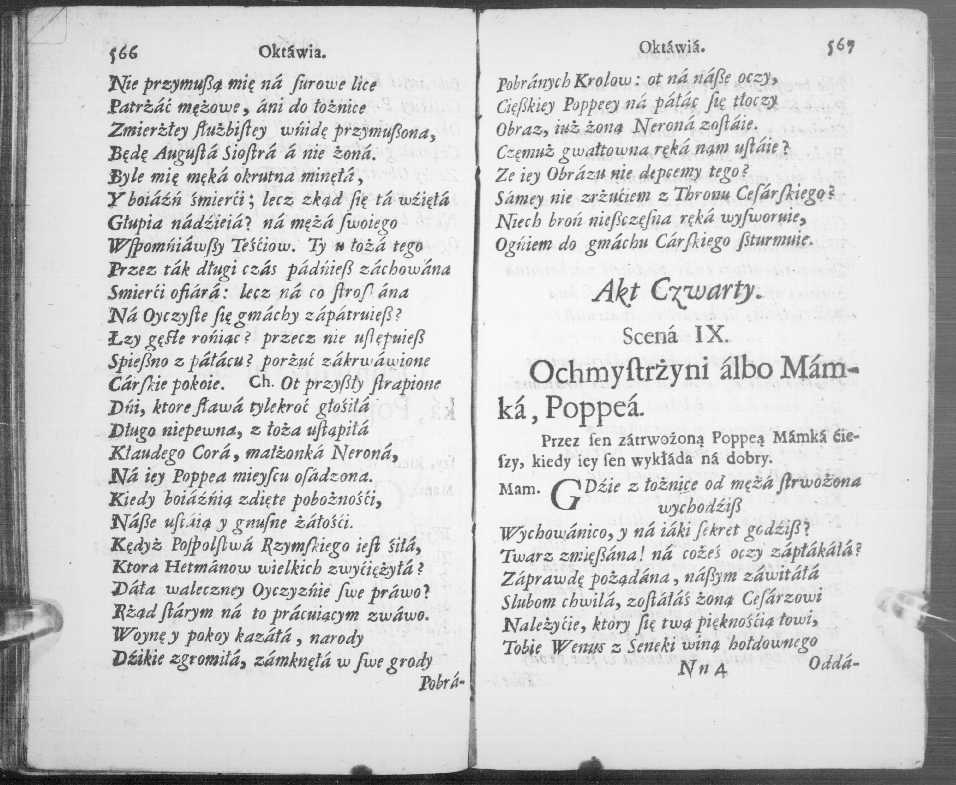 566 Oktáwia.
Nie przymußą mię ná ſurowe lice
Patrżáć mężowe, áni do łożnice
Zmierżłey ſłużbiſtey wńidę przymußona,
Będę Auguſtá Sioſtrá á nie żoná.
Byle mię męká okrutna minęłá,
Y boiáźń śmierći; lecz zkąd ſię tá wźięłá
Głupia nádźieiá? ná mężá ſwoiego
Wſpomńiáwßy Teśćiow. Ty u łożá tego
Przez ták długi czás pádńieß záchowána
Smierći ofiárá: lecz ná co ſtroſ ána
Ná Oyczyſte ſię gmáchy zápátruieß?
Łzy gęſte rońiąc? przecz nie uſtępuieß
Spießno z páłácu? porżuć zákrwáwione
Cárſkie pokoie. Ch. Ot przyſzły ſtrapione
Dńi, ktore ſławá tylekroć głośiłá
Długo niepewna, z łoża uſtąpiłá
Kłaudego Corá, małżonká Neroná,
Ná iey Poppea mieyſcu oſádzona.
Kiedy boiáźńią zdięte pobożnośći,
Náße uſtáią y gnuſne żáłośći.
Kędyż Poſpolſtwá Rzymſkiego ieſt śiłá,
Ktora Hetmánow wielkich zwyćiężyłá?
Dáłá waleczney Oyczyzńie ſwe práwo?
Rżąd ſtárym ná to prácuiącym zwáwo.
Woynę y pokoy kazáłá, narody
Dźikie zgromiłá, zámknęłá w ſwe grody
Pobrá-
Oktáwiá. 567
Pobránych Krolow: ot ná náße oczy,
Cięßkiey Poppeey ná páłác ſię tłoczy
Obraz, iuż żoną Neroná zoſtáie.
Częmuż gwałtowna ręká nąm uſtáie?
Ze iey Obrázu nie depcemy tego?
Sámey nie zrżućiem z Thronu Ceſárſkiego?
Niech broń nießczęſna ręká wyſworuie,
Ogńiem do gmáchu Cárſkiego ſturmuie.
Akt Czwarty.
Scená IX.
Ochmyſtrżyni álbo Mám-
ká, Poppeá.
Przez ſen zátrwożoną Poppeą Mámká ćie-
ſzy, kiedy iey ſen wykłáda ná dobry.
Mam. GDźie z łożnice od mężá ſtrwożona
wychodźiß
Wychowánico, y ná iáki ſekret godźiß?
Twarz zmięßána! ná cożeś oczy zápłákáłá?
Záprawdę pożądána, náßym záwitáłá
Slubom chwilá, zoſtáłáś żoną Ceſárzowi
Należyćie, ktory ſię twą pięknośćią łowi,
Tobie Wenus z Seneki winą hołdownego
Nn 4 Oddá-